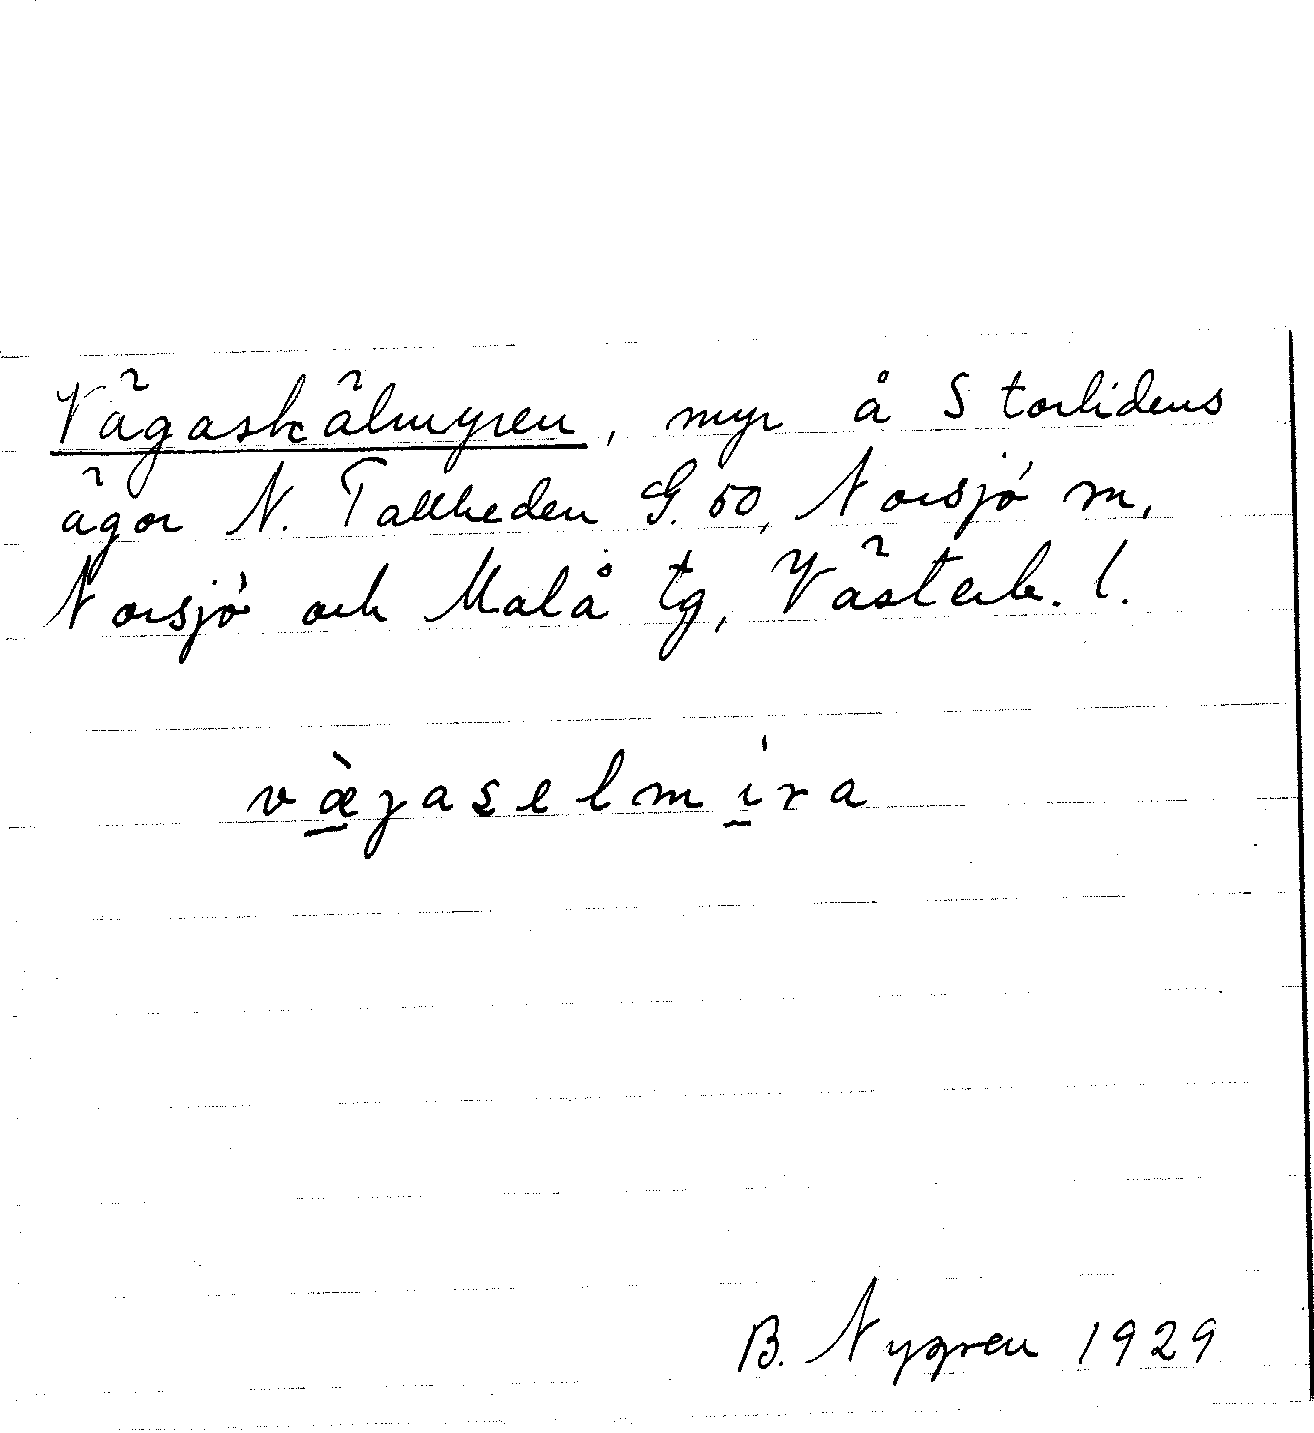 Vägaskälmyren, myr å Storlidens
ägor N. Tallheden G. 50, Norsjö sn,
Norsjö och Malå tg, Västerb. l.
væ̀gaselmíra
B. Nygren 1929